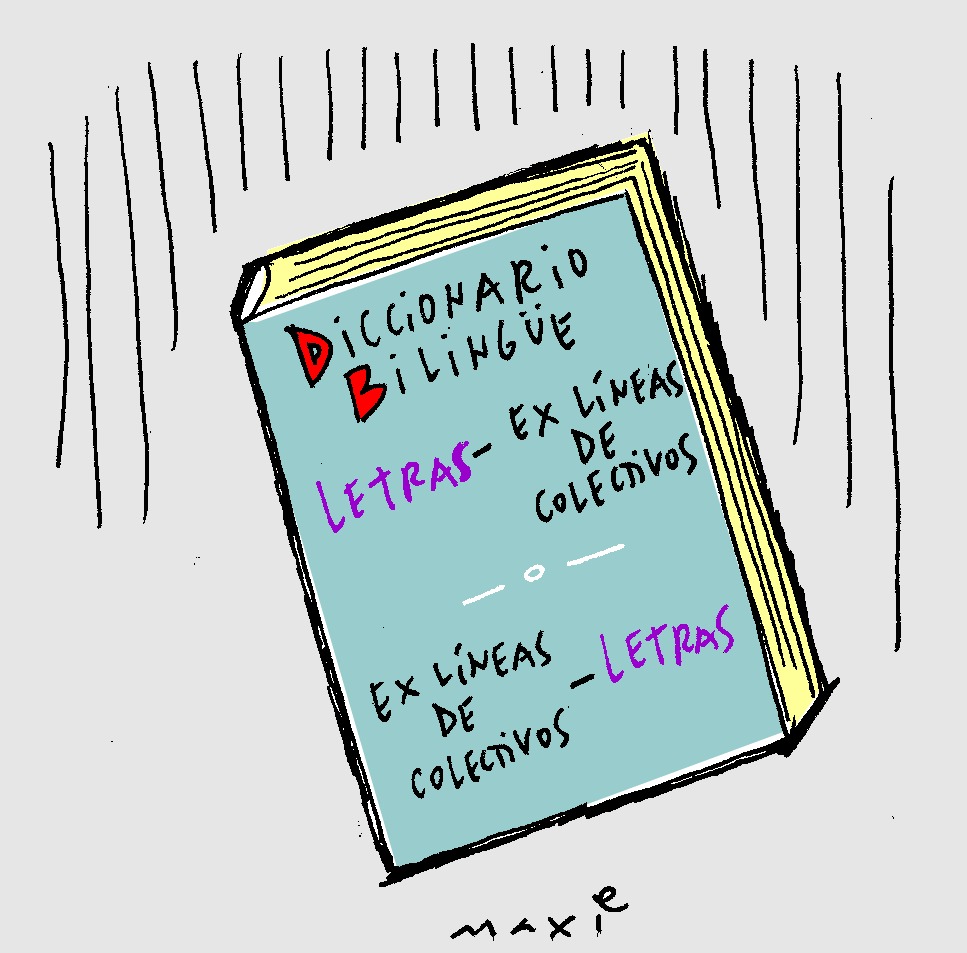 DiCCiONARiO
BiLiNGÜE
LETRAS - EX LÍNEAS
DE
COLECTIVOS
EX LÍNEAS
DE
COLECTIVOS - LETRAS
maxie